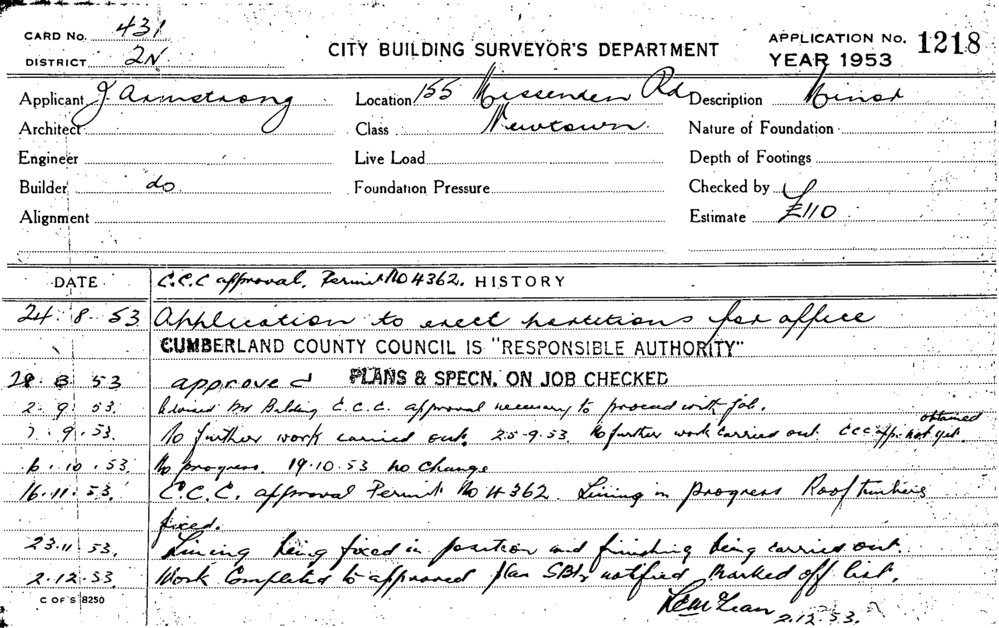 CARD No. 431
DISTRICT 2N
CITY BUILDING SURVEYOR'S DEPARTMENT
APPLICATION No. 1218
YEAR 1953
Applicant J. Armstrong Location 155 Missenden Rd Description Minor
Architect Class Newtown Nature of Foundation
Engineer Live Load Depth of Footings
Builder do Foundation Pressure Checked by
Alignment Estimate £110
DATE C.C.C approval. Permit No 4362. HISTORY
24. 8. 53 Application to erect partitions for office
CUMBERLAND COUNTY COUNCIL IS "RESPONSIBLE AUTHORITY"
28. 8. 53 approved PLANS & SPECN. ON JOB CHECKED
2. 9. 53. Advised Mr Balding C.C.C. approval necessary to proceed with job.
7. 9. 53. No further work carried out. 25-9-53 No further work carried out CCC app. not yet obtained
6. 10. 53. No progress. 19.10.53 no change
16.11.53. C.C.C. approval Permit No 4362 Lining in progress Roof timbers
fixed.
23.11.53. Lining being fixed in position and finishing being carried out.
2.12.53. Work Completed to approved plan notified Marked off list.
C OF S 8250
2.12.53.